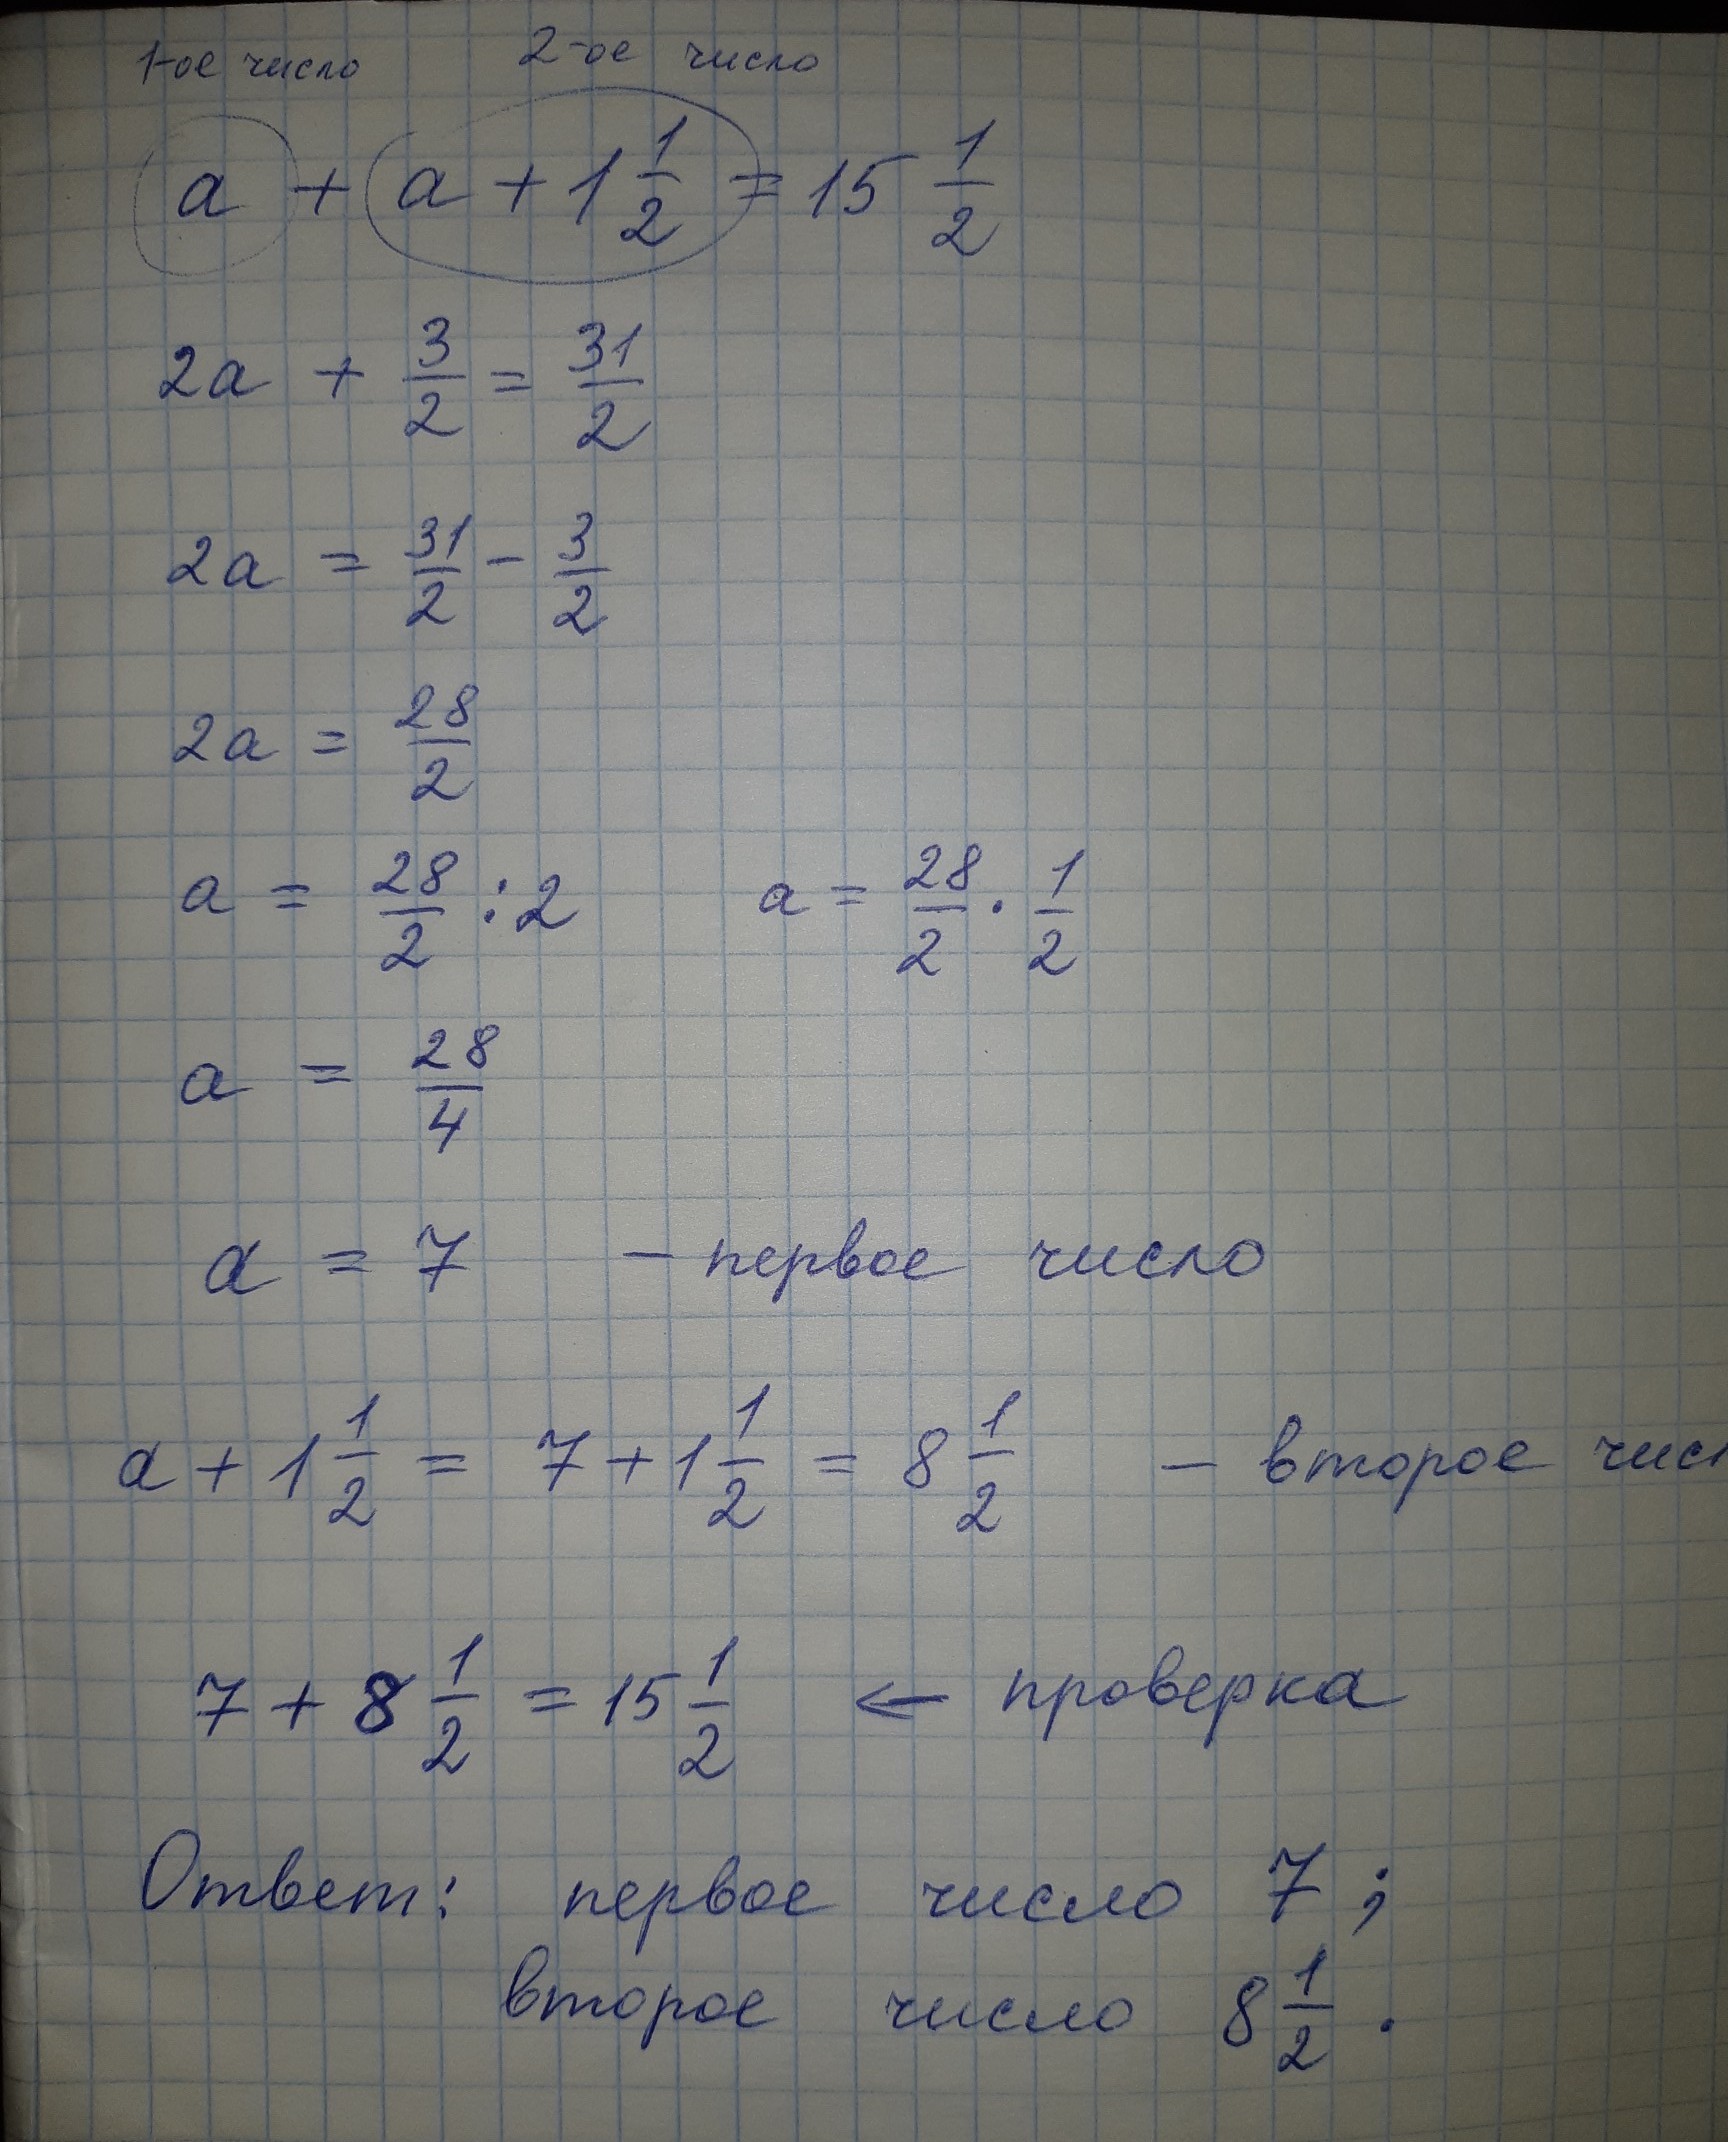 1-ое число 2-ое число
a + a + 1 1/2 = 15 1/2
2a + 3/2 = 31/2
2a = 31/2 - 3/2
2a = 28/2
a = 28/2 : 2 a = 28/2 · 1/2
a = 28/4
a = 7 - первое число
a + 1 1/2 = 7 + 1 1/2 = 8 1/2 - второе чис
7 + 8 1/2 = 15 1/2 ← проверка
Ответ: первое число 7;
второе число 8 1/2.